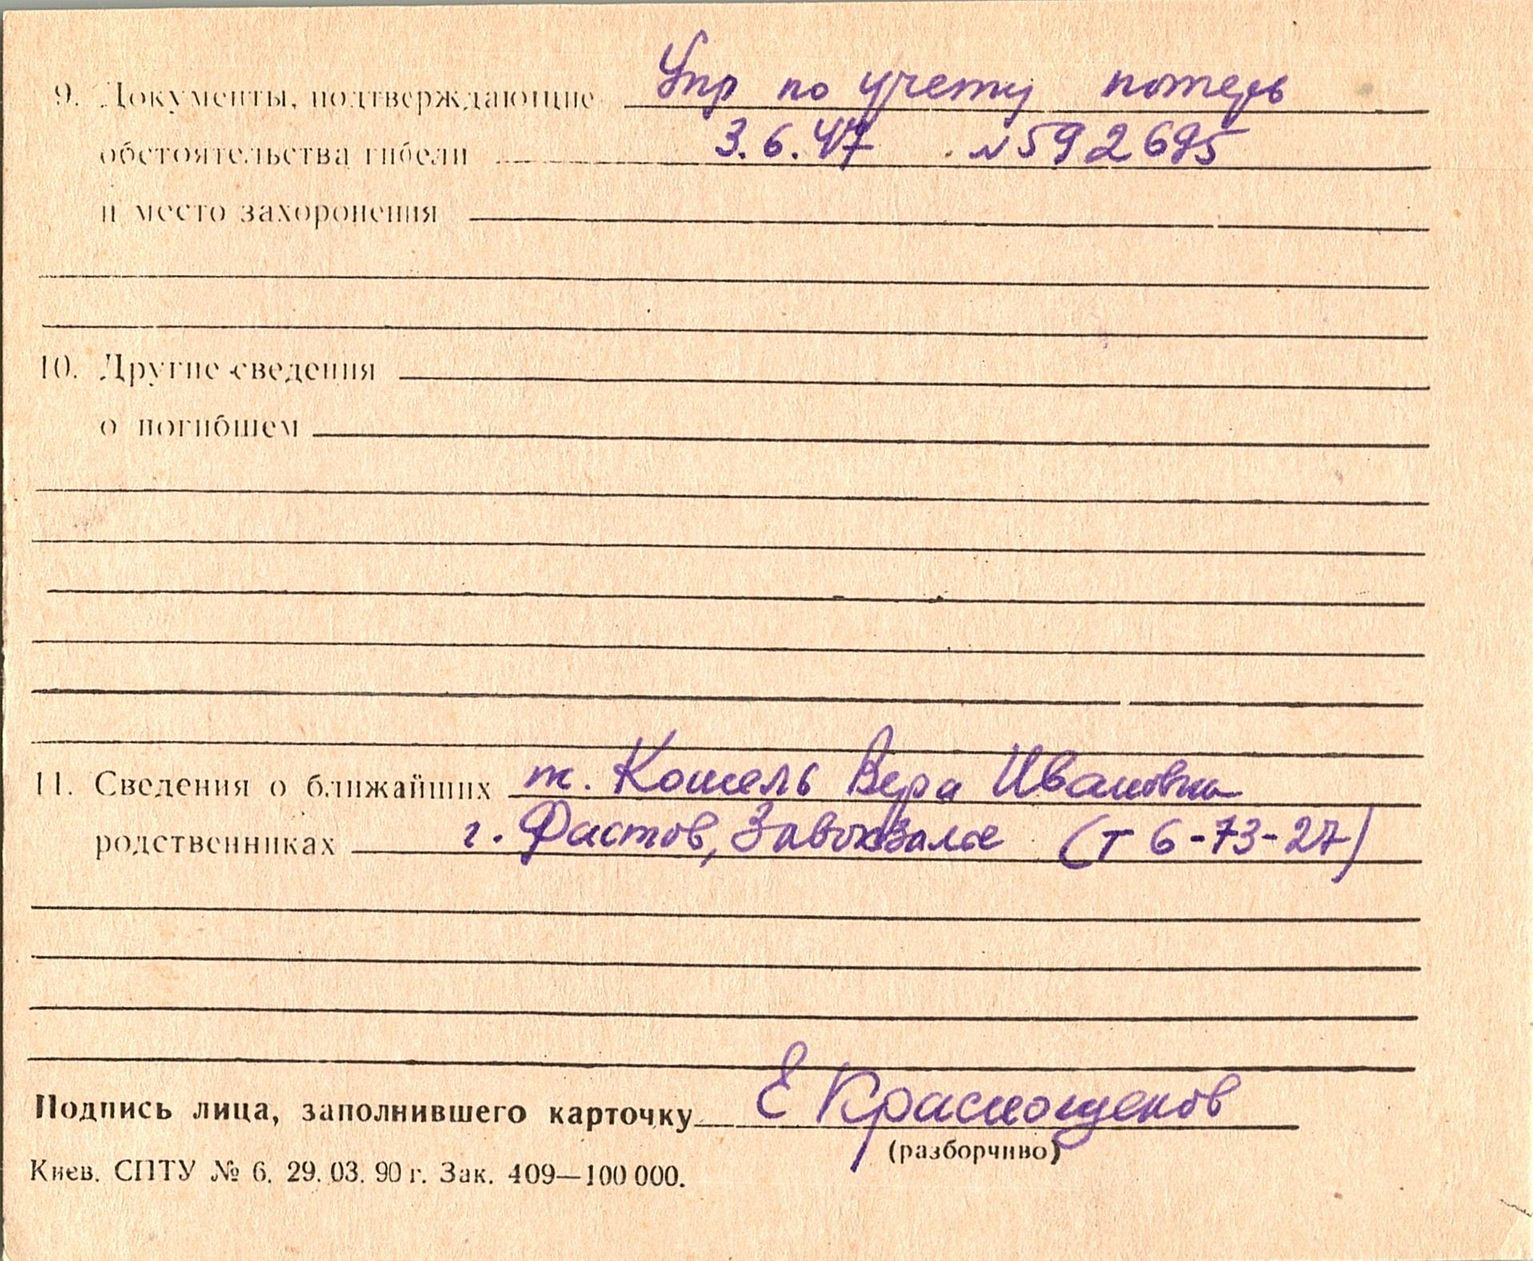 9. Документы, подтверждающие Упр по учету потерь
обстоятельства гибели 3.6.47 №592695
и место захоронения
10. Другие сведения
о погибшем
11. Сведения о ближайших т. Кошель Вера Ивановна
родственниках г. Фастов, Завокзалье (т 6-73-27)
Подпись лица, заполнившего карточку Е Краснощеков
(разборчиво)
Киев. СПТУ № 6. 29. 03. 90 г. Зак. 409—100 000.